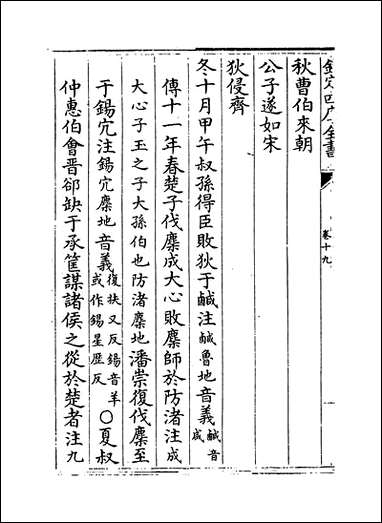 欽定四庫全書
卷十九
秋曹伯來朝
公子遂如宋
狄侵齊
冬十月甲午叔孫得臣敗狄于鹹注鹹魯地音義鹹音咸
傳十一年春楚子伐麇成大心敗麇師於防渚注成
大心子玉之子大孫伯也防渚麇地潘崇復伐麇至
于錫穴注錫穴麇地音義復扶又反錫音羊或作錫星歷反○夏叔
仲惠伯會晉郤缺于承筐謀諸侯之從於楚者注九